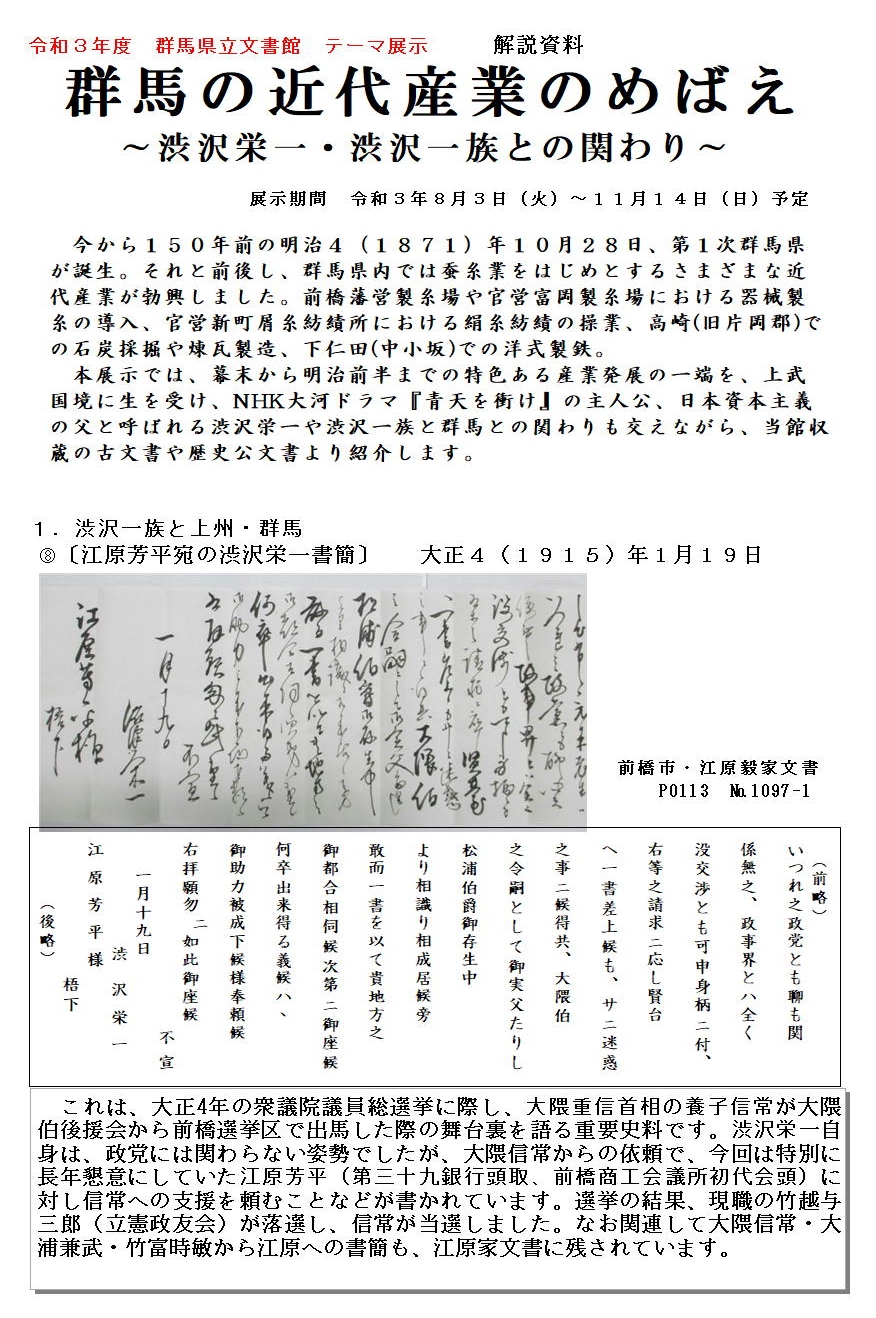 令和３年度　群馬県立文書館　テーマ展示　　　解説資料
群馬の近代産業のめばえ
～渋沢栄一・渋沢一族との関わり～
展示期間　令和３年８月３日（火）～１１月１４日（日）予定
今から１５０年前の明治４（１８７１）年１０月２８日、第１次群馬県
が誕生。それと前後し、群馬県内では蚕糸業をはじめとするさまざまな近
代産業が勃興しました。前橋藩営製糸場や官営富岡製糸場における器械製
糸の導入、官営新町屑糸紡績所における絹糸紡績の操業、高崎(旧片岡郡)で
の石炭採掘や煉瓦製造、下仁田(中小坂)での洋式製鉄。
本展示では、幕末から明治前半までの特色ある産業発展の一端を、上武
国境に生を受け、NHK大河ドラマ『青天を衝け』の主人公、日本資本主義
の父と呼ばれる渋沢栄一や渋沢一族と群馬との関わりも交えながら、当館収
蔵の古文書や歴史公文書より紹介します。
１．渋沢一族と上州・群馬
⑧〔江原芳平宛の渋沢栄一書簡〕　　大正４（１９１５）年１月１９日
前橋市・江原毅家文書
P0113　№1097-1
（前略）
いつれ之政党とも聊も関
係無之、政事界とハ全く
没交渉とも可申身柄ニ付、
右等之請求ニ応し賢台
へ一書差上候も、サニ迷惑
之事ニ候得共、大隈伯
之令嗣として御実父たりし
松浦伯爵御存生中
より相識り相成居候旁
敢而一書を以て貴地方之
御都合相伺候次第ニ御座候
何卒出来得る義候ハ、
御助力被成下候様奉頼候
右拝願勿ニ如此御座候
不宣
一月十九日
渋沢栄一
江原芳平様
梧下
（後略）
これは、大正4年の衆議院議員総選挙に際し、大隈重信首相の養子信常が大隈
伯後援会から前橋選挙区で出馬した際の舞台裏を語る重要史料です。渋沢栄一自
身は、政党には関わらない姿勢でしたが、大隈信常からの依頼で、今回は特別に
長年懇意にしていた江原芳平（第三十九銀行頭取、前橋商工会議所初代会頭）に
対し信常への支援を頼むことなどが書かれています。選挙の結果、現職の竹越与
三郎（立憲政友会）が落選し、信常が当選しました。なお関連して大隈信常・大
浦兼武・竹富時敏から江原への書簡も、江原家文書に残されています。